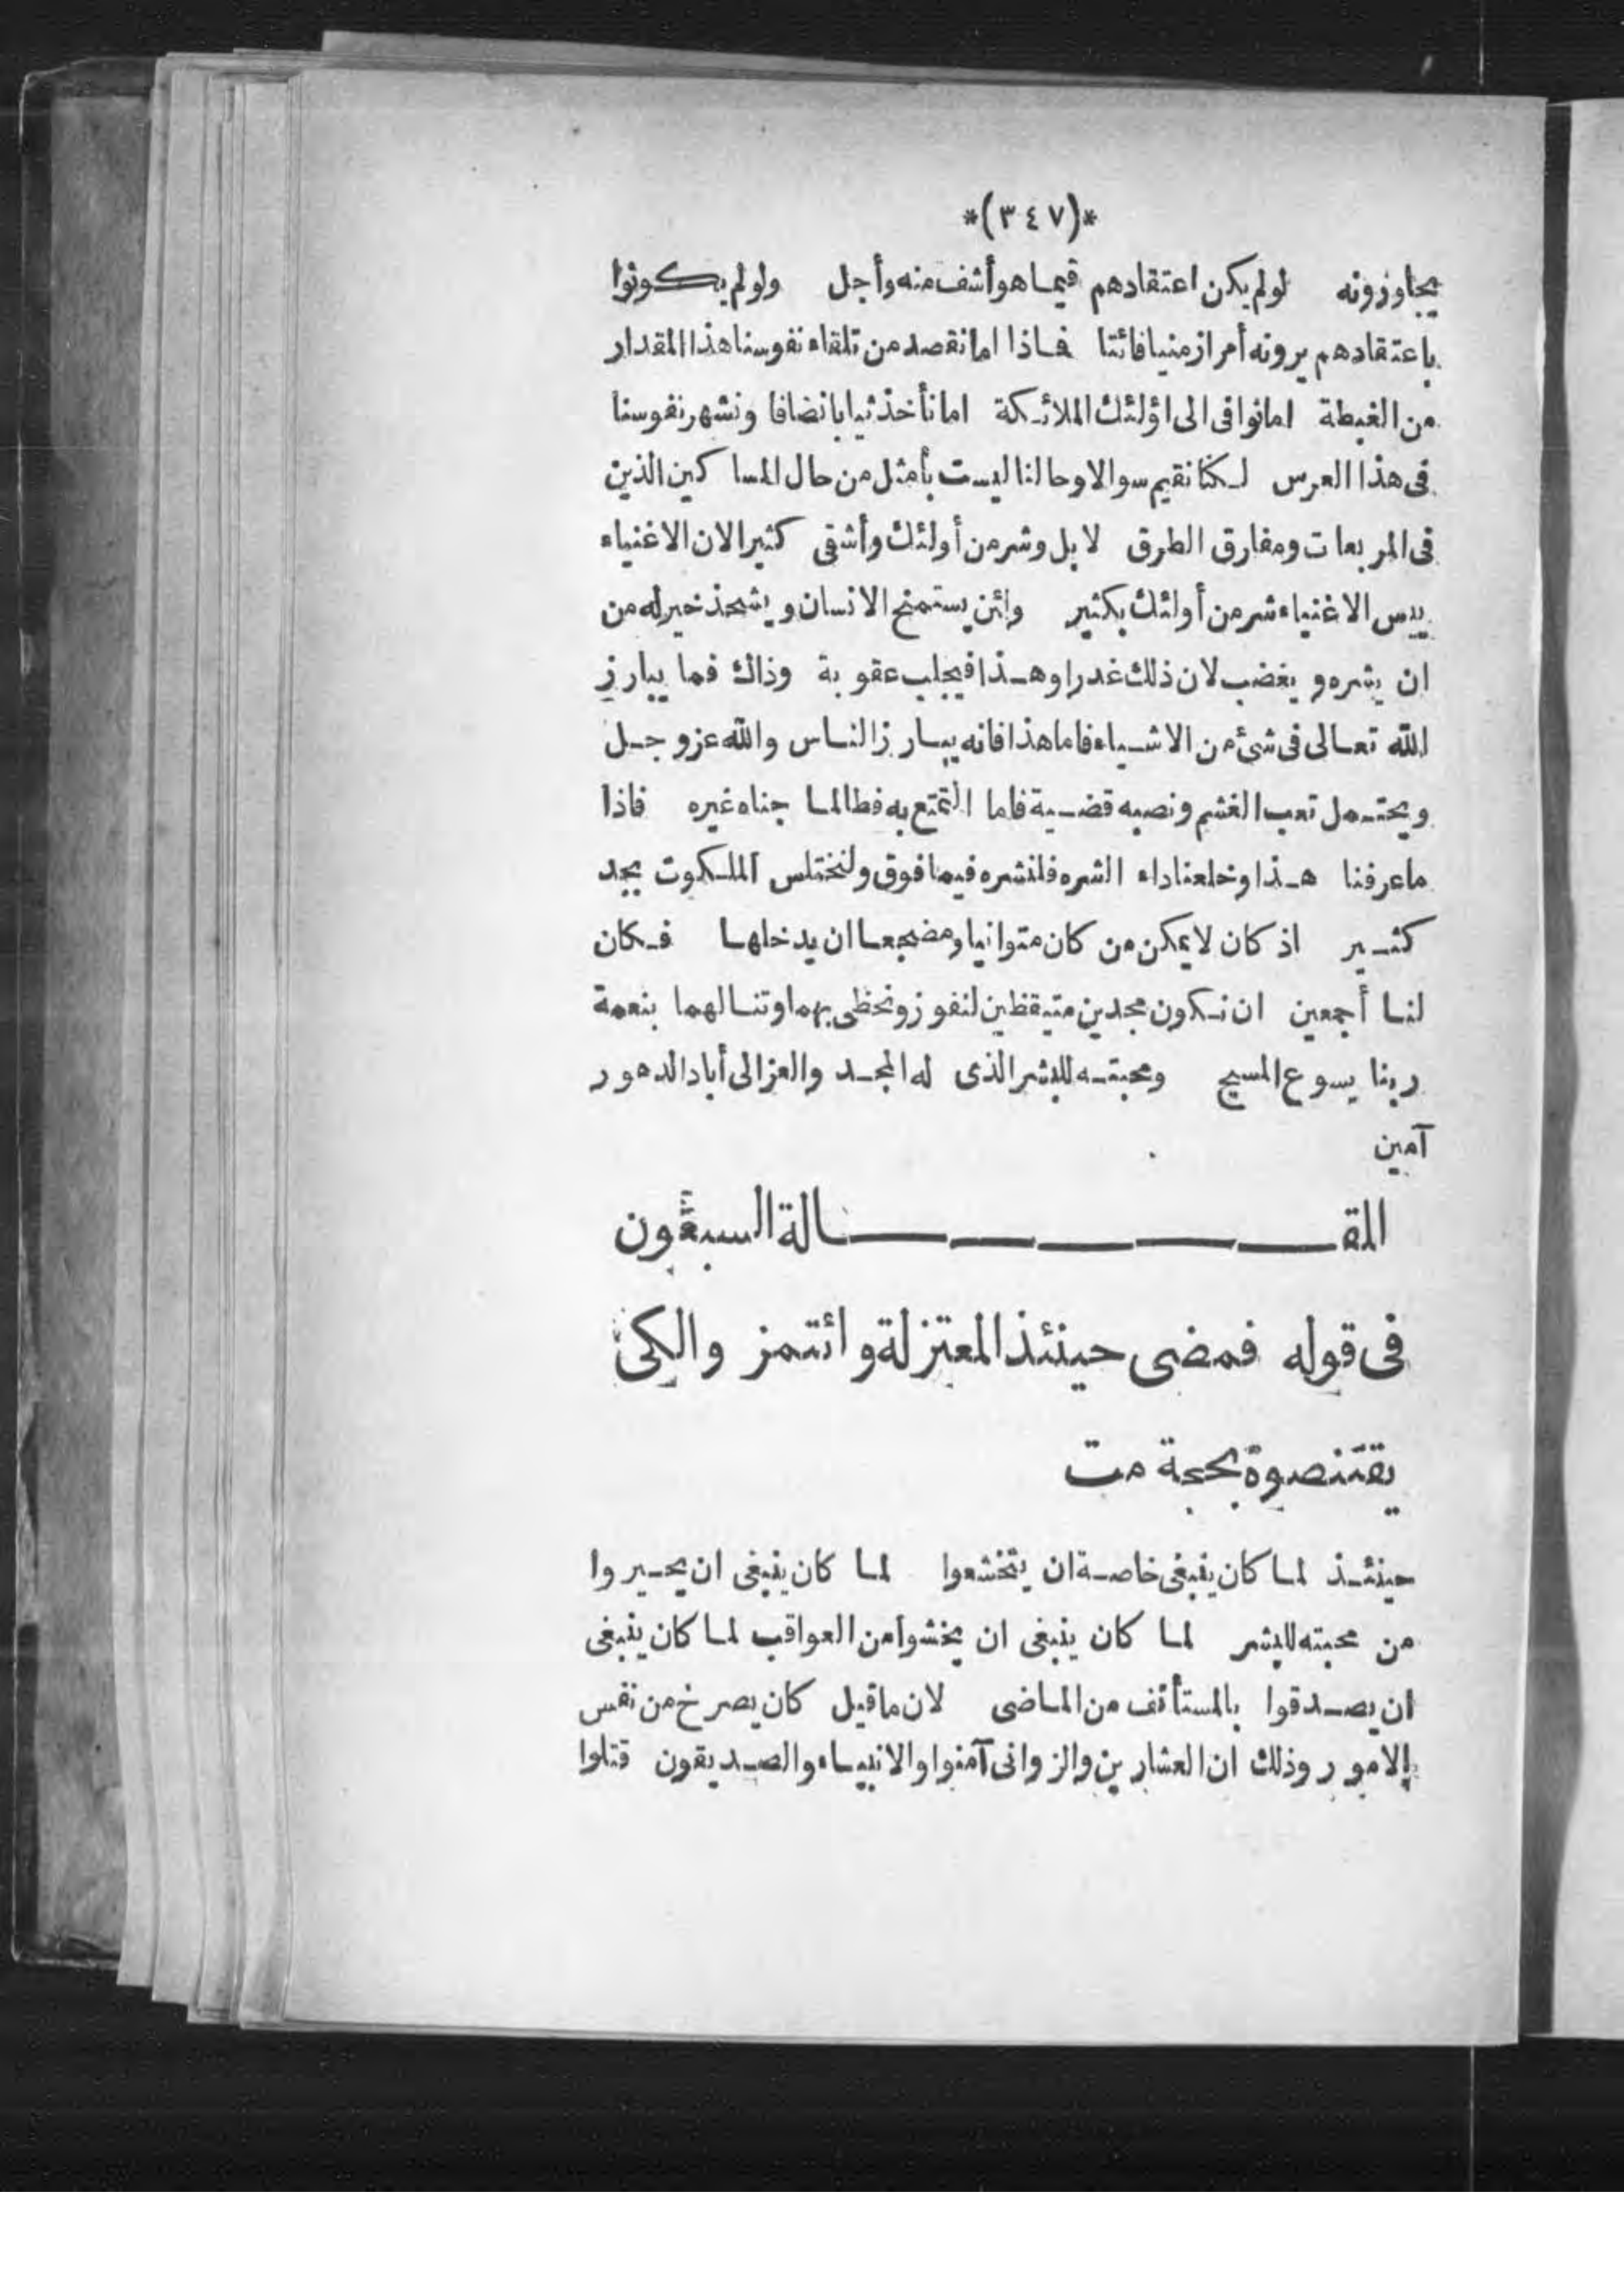 *(٣٤٧)*
يجاوزونه لولم يكن اعتقادهم فيما هو أشف منه وأجل ولولم يكونوا
باعتقادهم يرونه أمرا زمنيا فائتا فاذا اما نقصد من تلقاء نفوسنا هذا المقدار
من الغبطة اما نوافى الى اؤلئك الملائكة اما نأخذ ثيابا نضافا ونشهر نفوسنا
فى هذا العرس لكنا نقيم سوالا وحالنا ليست بأمثل من حال المساكين الذين
فى المربعات ومفارق الطرق لا بل وشر من أولئك وأشقى كثيرا لان الاغنياء
يبس الاغنياء شر من أولئك بكثير وائن يستمنح الانسان ويشحذ خير له من
ان يشره ويغضب لان ذلك غدرا وهذا فيجلب عقوبة وذاك فما يبارز
الله تعالى فى شئ من الاشياء فاما هذا فانه يبارز الناس والله عز وجل
ويحتمل تعب الغشم ونصبه قضية فاما التمتع به فطالما جناه غيره فاذا
ما عرفنا هذا وخلعنا داء الشره فلنشره فيما فوق ولنختلس الملكوت بجد
كثير اذ كان لا يمكن من كان متوانيا ومضجعا ان يدخلها فكان
لنا أجمعين ان نكون مجدين متيقظين لنفوز ونحظى بهما وتنالهما بنعمة
ربنا يسوع المسيح ومحبته للبشر الذى له المجد والعز الى أباد الدهور
آمين
المقالة السبعون
فى قوله فمضى حينئذ المعتزلة وائتمز والكى
يقتنصوة بحجة مت
حينئذ لما كان ينبغى خاصة ان يتخشعوا لما كان ينبغى ان يحيروا
من محبته للبشر لما كان ينبغى ان يخشوا من العواقب لما كان ينبغى
ان يصدقوا بالمستأنف من الماضى لان ما قيل كان يصرخ من نفس
الامور وذلك ان العشارين والزوانى آمنوا والانبياء والصديقون قتلوا